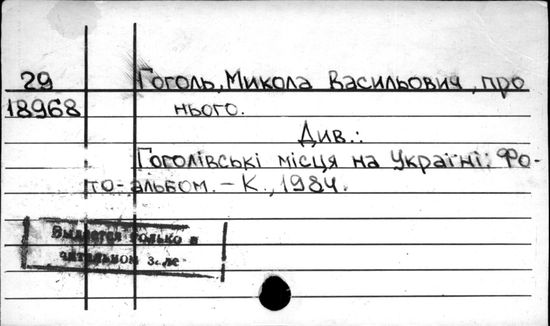 29
18968
Гоголь, Микола Васильович, про
нього.
Див.:
Гоголівські місця на Україні: Фо-
то-альбом. – К., 1984.
Выдается только в
читальном зале